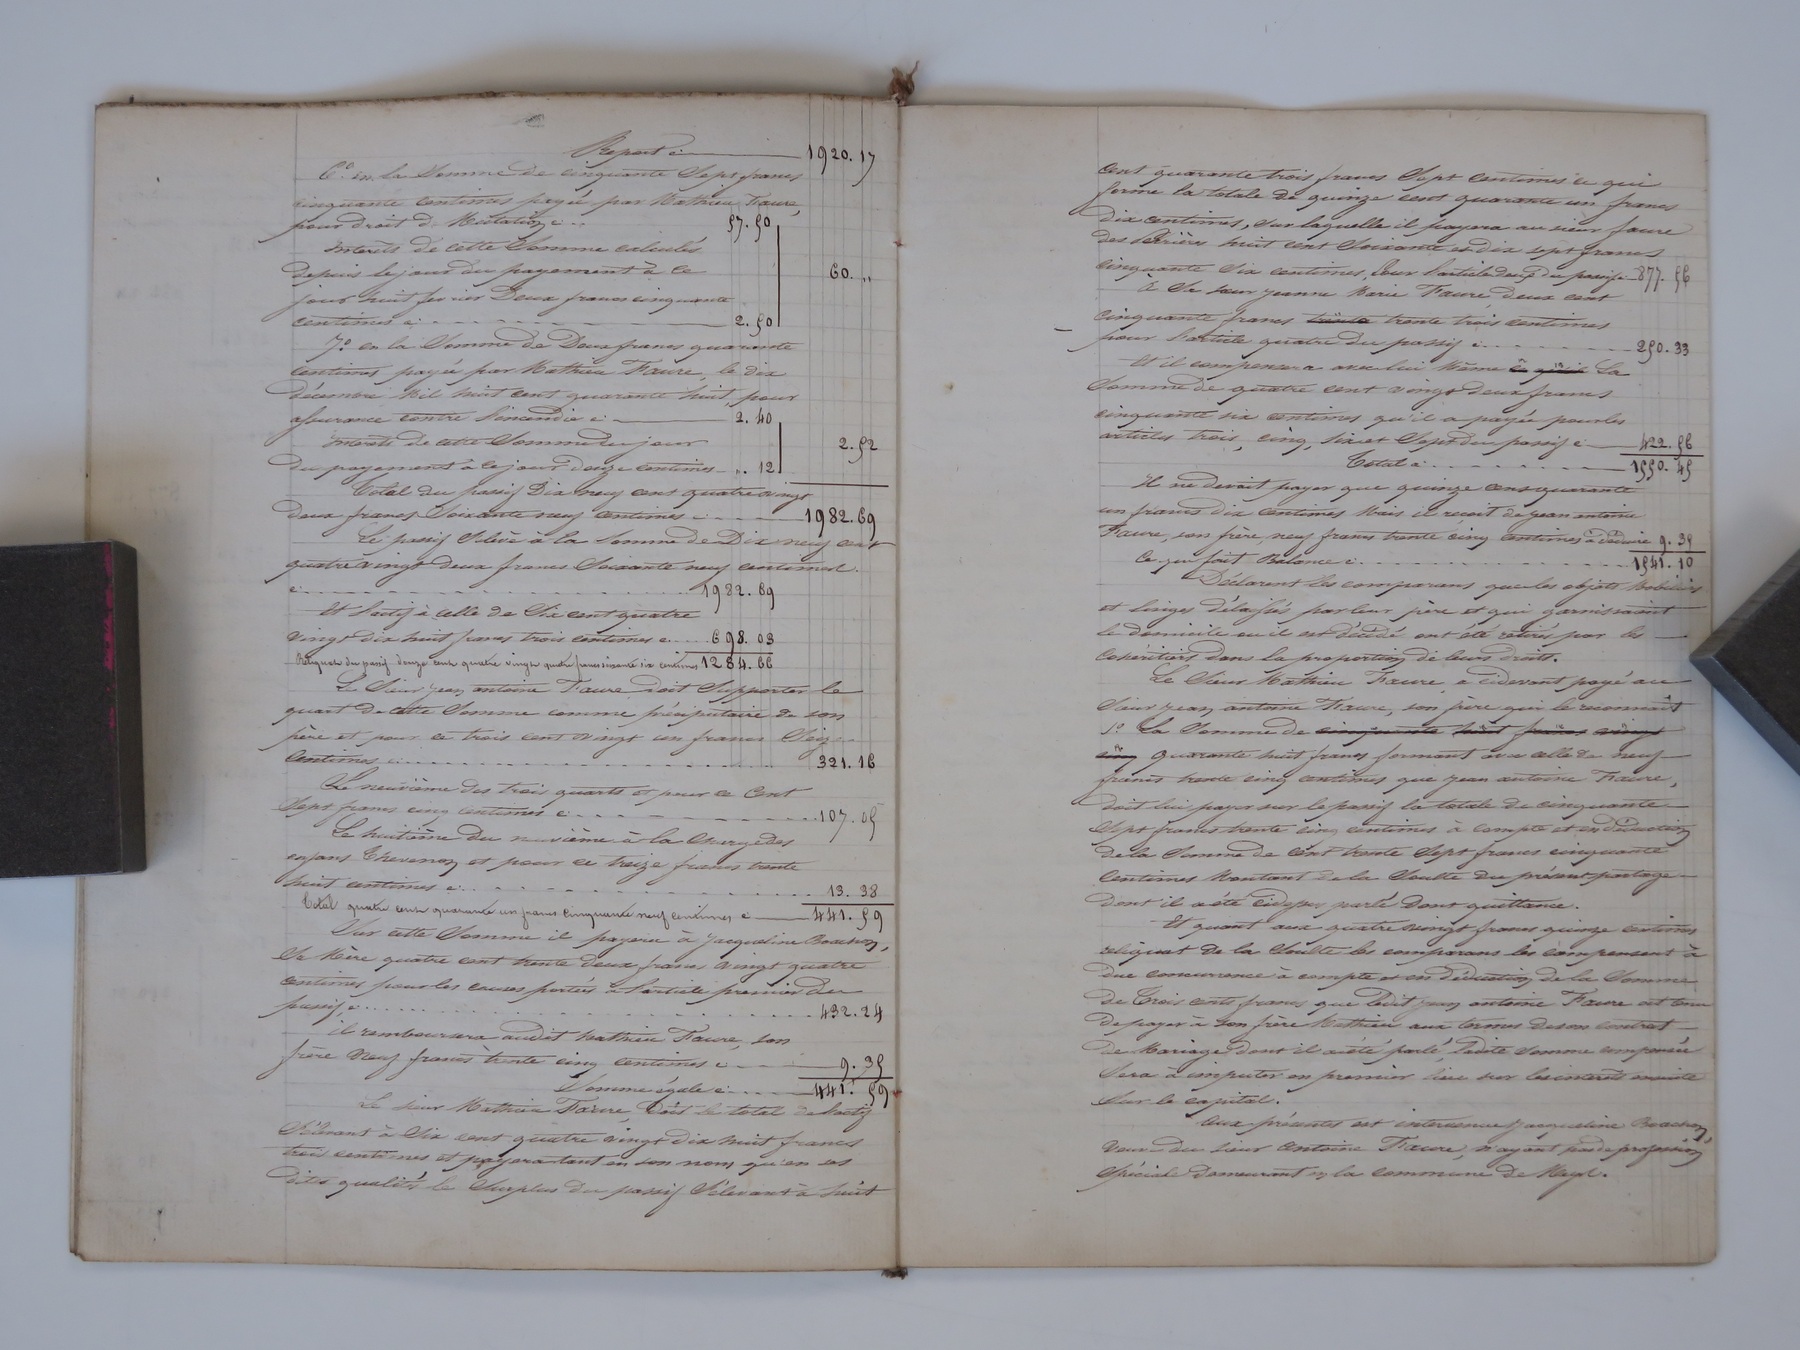 Report ci 1920. 17
6° en la Somme de cinquante Sept francs
cinquante centimes payée par Mathieu Faure,
pour droit de Mutation ci 57. 50
Interets de cette Somme calculés
depuis le jour du payement à ce 60. "
jour huit fevrier Deux francs cinquante
centimes ci 2. 50
7° en la Somme de Deux francs quarante
centimes payée par Mathieu Faure, le dix
décembre Mil huit cent quarante huit, pour
assurance contre l'incendie ci 2. 40
Interets de cette Somme du jour 2. 52
du payement à ce jour douze centimes ". 12
Total du passif Dix neuf cent quatre vingt
deux francs Soixante neuf centimes ci 1982. 69
Le passif S'élève à la Somme de Dix neuf cent
quatre vingt deux francs Soixante neuf centimes.
ci 1982. 69
Et l'actif à celle de Six cent quatre
vingt dix huit francs trois centimes ci 698. 03
Reliquat du passif douze cent quatre vingt quatre francs soixante six centimes 1284. 66
Le Sieur Jean antoine Faure doit Supporter le
quart de cette Somme comme préciputaire de son
père et pour ce trois cent vingt un francs Seize
Centimes ci 321. 16
Le neuvième des trois quarts et pour ce Cent
Sept francs cinq centimes ci 107. 05
Le huitième du neuvième à la charge des
enfans Thevenon et pour ce treize francs trente
huit centimes ci 13. 38
Total quatre cent quarante un francs Cinquante neuf centimes ci 441. 59
Sur cette Somme il payera à Jacqueline Beachon,
Sa Mère quatre cent trente deux francs vingt quatre
centimes pour les causes portées à l'article premier du
passif, ci 432. 24
il remboursera audit Mathieu Faure, son
frère Neuf francs trente cinq centimes ci 9. 35
Somme égale ci 441. 59
Le sieur Mathieu Faure, Doit le total de l'actif
S'élevant à Six cent quatre vingt dix huit francs
trois centimes et payera tant en son nom qu'en ses
dites qualités le Surplus du passif S'élevant à huit
cent quarante trois francs Sept centimes ce qui
forme la totale de quinze cent quarante un francs
dix centimes, sur laquelle il payera au sieur faure
des huit cent Soixante et dix sept francs
cinquante Six centimes, pour l'article deux du passif 877. 56
à Sa sœur jeanne Marie Faure deux cent
cinquante francs trente trente trois centimes
pour l'article quatre du passif ci 250. 33
Et il compensera avec lui Même La
Somme de quatre cent vingt deux francs
cinquante six centimes qu'il a payée pour les
articles trois, cinq, six et Sept du passif ci 422. 56
Total ci 1550. 45
Il ne devait payer que quinze cent quarante
un francs dix centimes Mais il recoit de jean antoine
Faure, son frère, neuf francs trente cinq centimes à déduire 9. 35
Ce qui fait Balance ci 1541. 10
Déclarent les comparans que les objets Mobiliers
et linges délaissés par leur père et qui garnissaient
le domicile ou il est décédé ont été retirés par les
cohéritiers dans la proportion de leurs droits.
Le Sieur Mathieu Faure, a cidevant payé au
Sieur Jean antoine Faure, son frère qui le reconnait
1° La Somme de cinquante huit francs vingt
cinq quarante huit francs formant avec celle de neuf
francs trente cinq centimes que Jean antoine Faure,
doit lui payer sur le passif la totale de cinquante
Sept francs trente cinq centimes à compte et en déduction
de la Somme de Cent trente Sept francs cinquante
Centimes Montant de la Soulte du présent partage
dont il a été cidessus parlé Dont quittance.
Et quant aux quatre vingt francs quinze centimes
reliquat de la Soulte les comparans les compensent à
due concurrence à compte et en déduction de la Somme
de Trois cents francs que Ledit Jean antoine Faure est tenu
de payer à son frère Mathieu aux termes de son contrat
de Mariage dont il a été parlé, Ladite Somme compensée
Sera à imputer en premier lieu sur les interets ensuite
Sur le capital.
Aux présentes est intervenue Jacqueline Beachon,
veuve du sieur Antoine Faure, n'ayant pas de profession
Spéciale Demeurant en la commune de